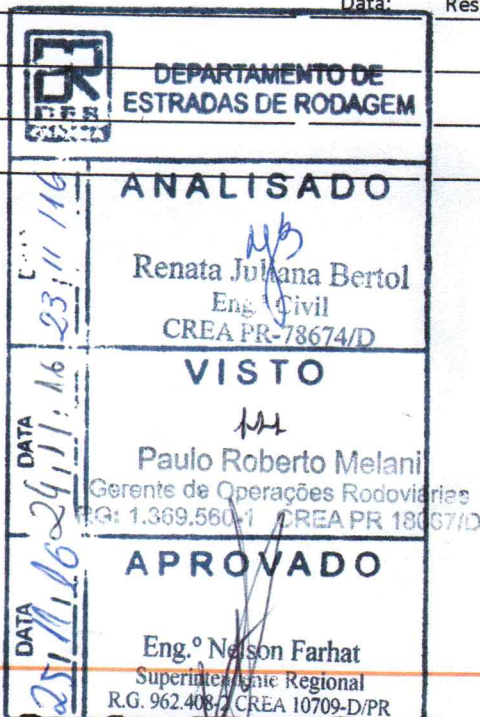 Data: Res
DER
DEPARTAMENTO DE
ESTRADAS DE RODAGEM
ANALISADO
23/11/16
Renata Juliana Bertol
Eng.ª Civil
CREA PR-78674/D
VISTO
DATA
24/11/16
Paulo Roberto Melani
Gerente de Operações Rodoviárias
RG: 1.369.560-1 CREA PR 18067/D
APROVADO
DATA
25/11/16
Eng.º Nelson Farhat
Superintendente Regional
R.G. 962.408-2 CREA 10709-D/PR